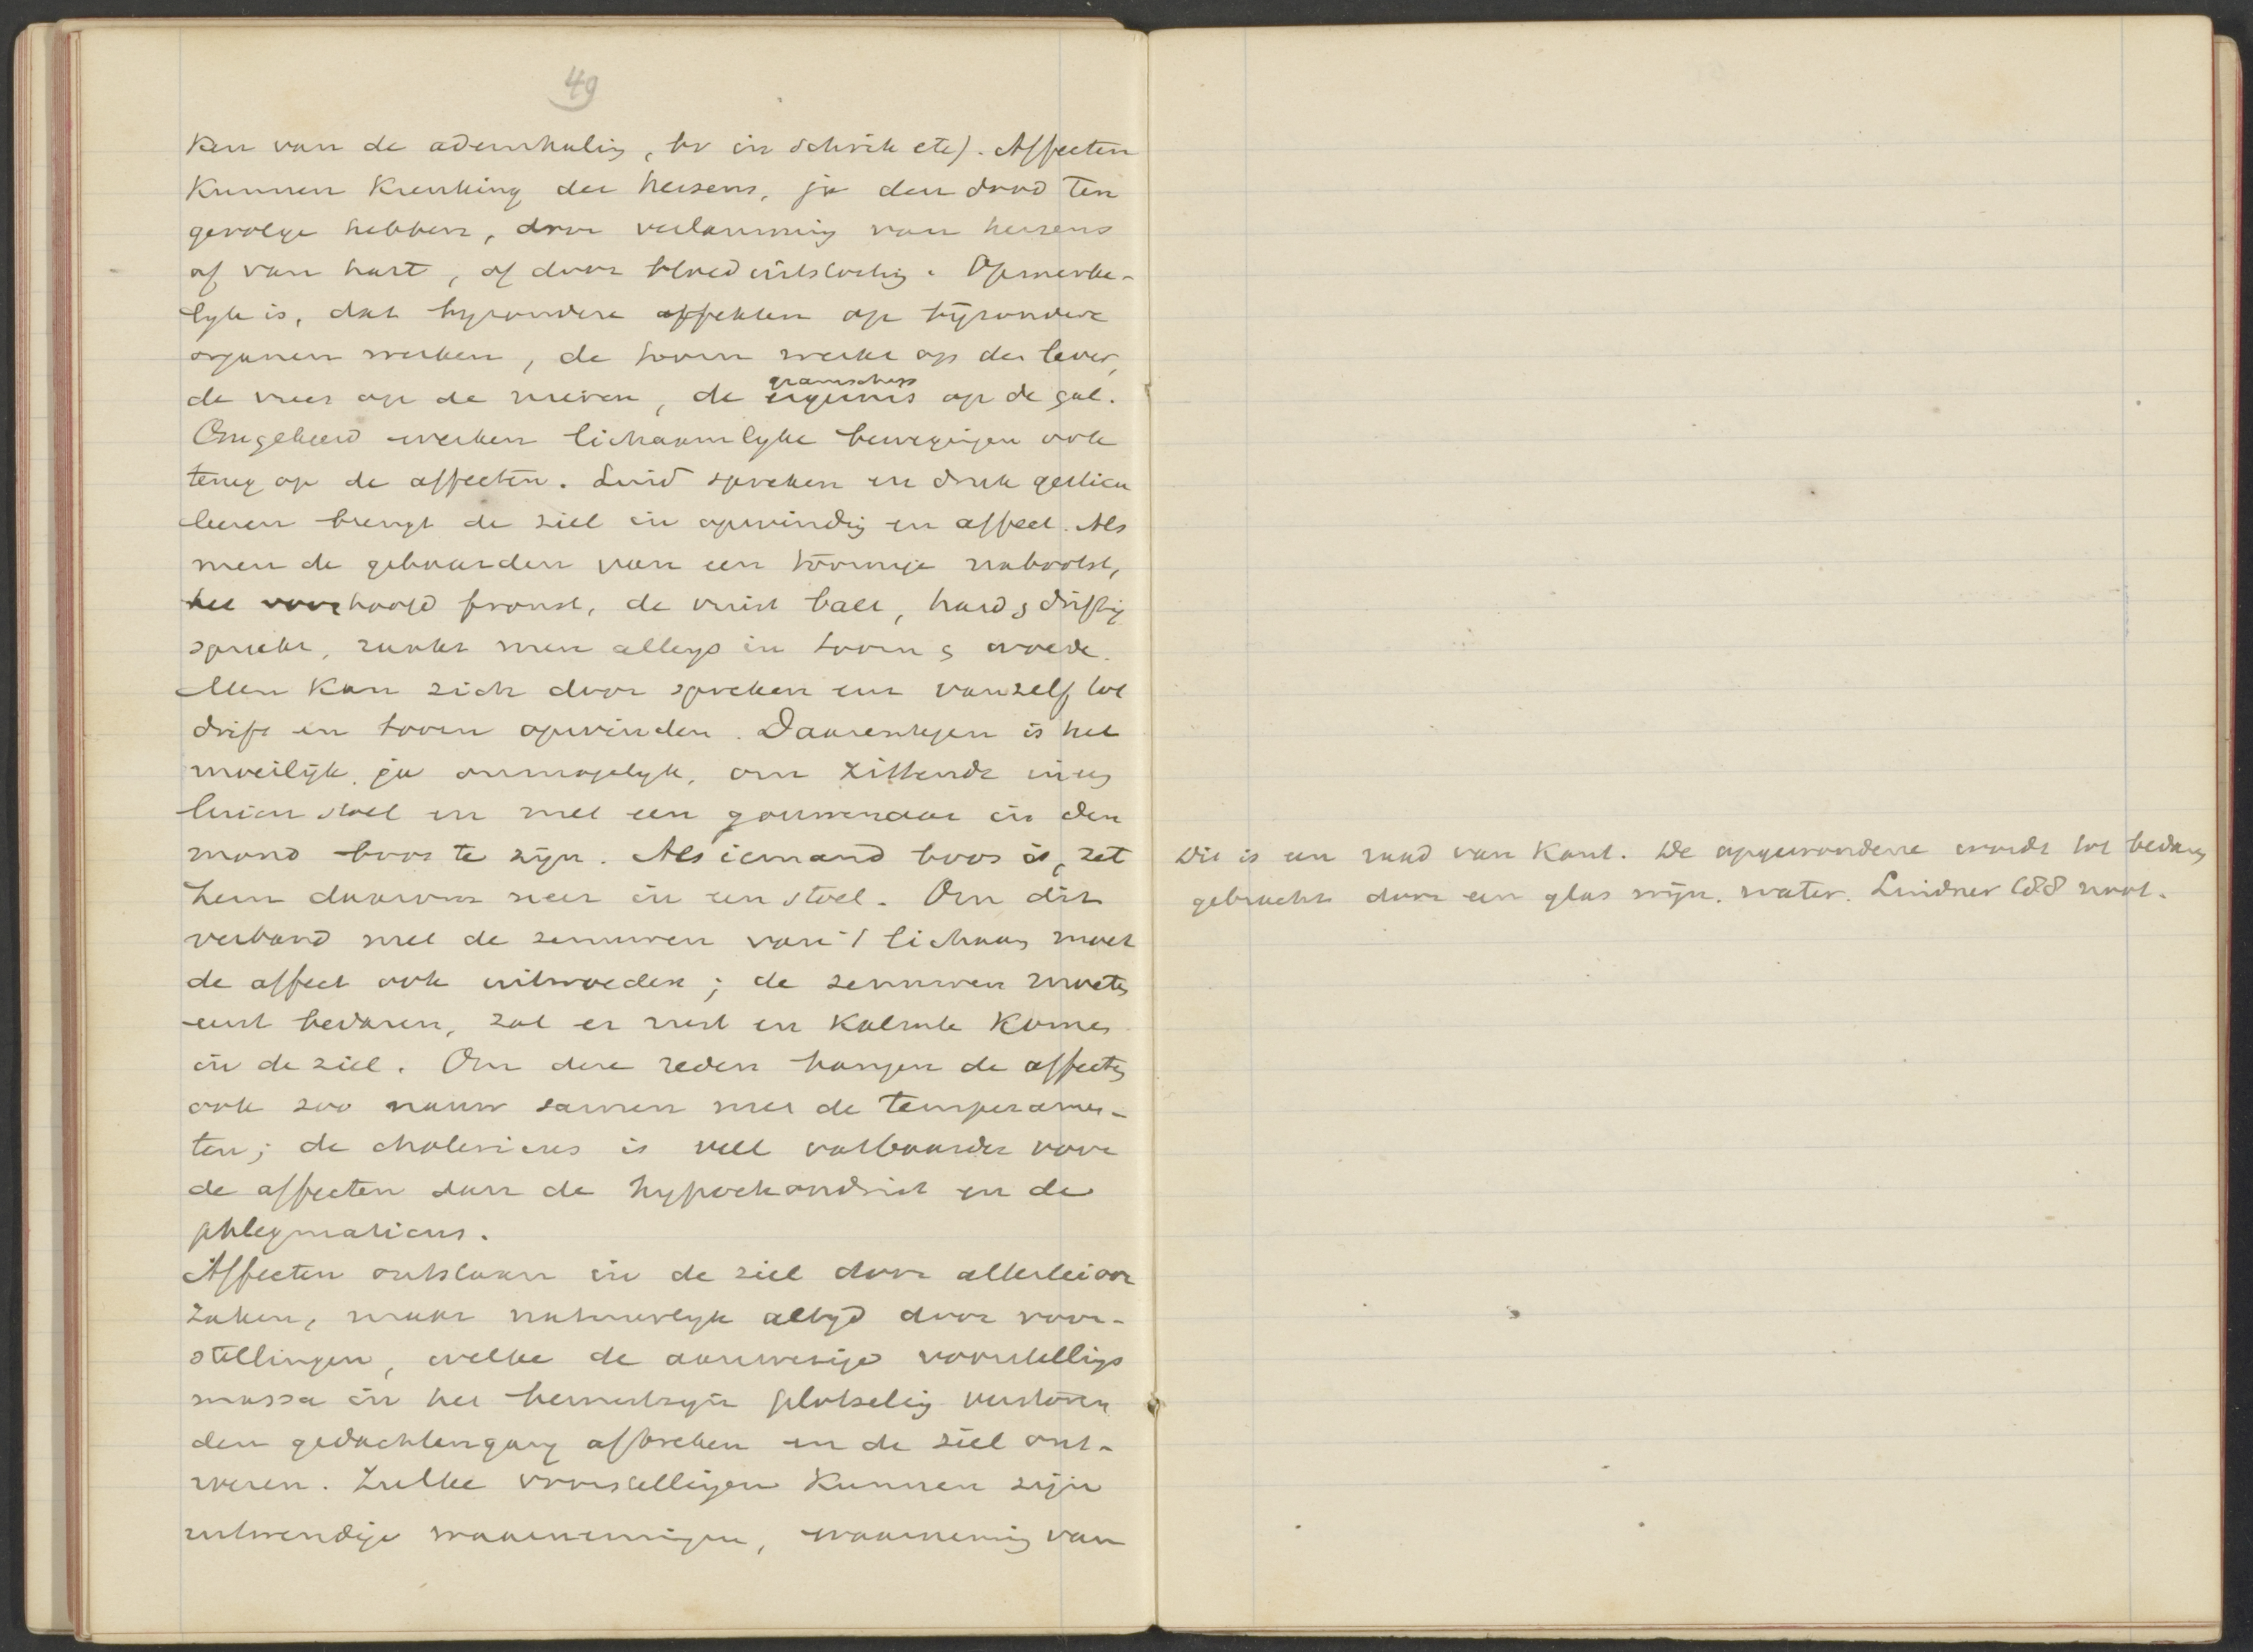 49
ken van de ademhaling, bv in schrik etc). Affecten
kunnen krenking der hersens, ja den dood ten
gevolge hebben, door verlamming van hersens
of van hart, of door bloeduitstorting. Opmerke-
lyk is, dat byzondere affekten op bijzondere
organen werken, de toorn werkt op de lever,
de vrees op de nieren, de ergernis op de gal.
gramschap
Omgekeerd werken lichaamlyke bewegingen ook
terug op de affecten. Luid spreken en druk gesticu
leeren brengt de ziel in opwinding en affect. Als
men de gebaarden van een toornige nabootst,
het voorhoofd fronst, de vuist balt, hard & driftig
spreekt, raakt men allengs in toorn & woede.
Men kan zich door spreken enz vanzelf tot
drift en toorn opwinden. Daarentegen is het
moeilijk, ja onmogelyk, om zittende in een
luien stoel en met een gouwenaar in den
mond boos te zijn. Als iemand boos is, zet
hem daarom neer in een stoel. Om dit
verband met de zenuwen van 't lichaam moet
de affect ook uitwoeden; de zenuwen moeten
eerst bedaren, zal er rust en kalmte komen
in de ziel. Om deze reden hangen de affecten
ook zoo nauw samen met de temperamen-
ten; de cholericus is veel vatbaarder voor
de affecten dan de hypochondrist en de
phlegmaticus.
Affecten ontstaan in de ziel door allerlei oor
zaken, maar natuurlyk altyd door voor-
stellingen, welke de aanwezige voorstellings
massa in het bewustzyn plotseling verstoren
den gedachtengang afbreken en de ziel ont-
roeren. Zulke voorstellingen kunnen zijn
uitwendige waarnemingen, waarneming van
Dit is een raad van Kant. De opgewondene wordt tot bedaren
gebracht door een glas wijn. water. Lindner 188 noot.